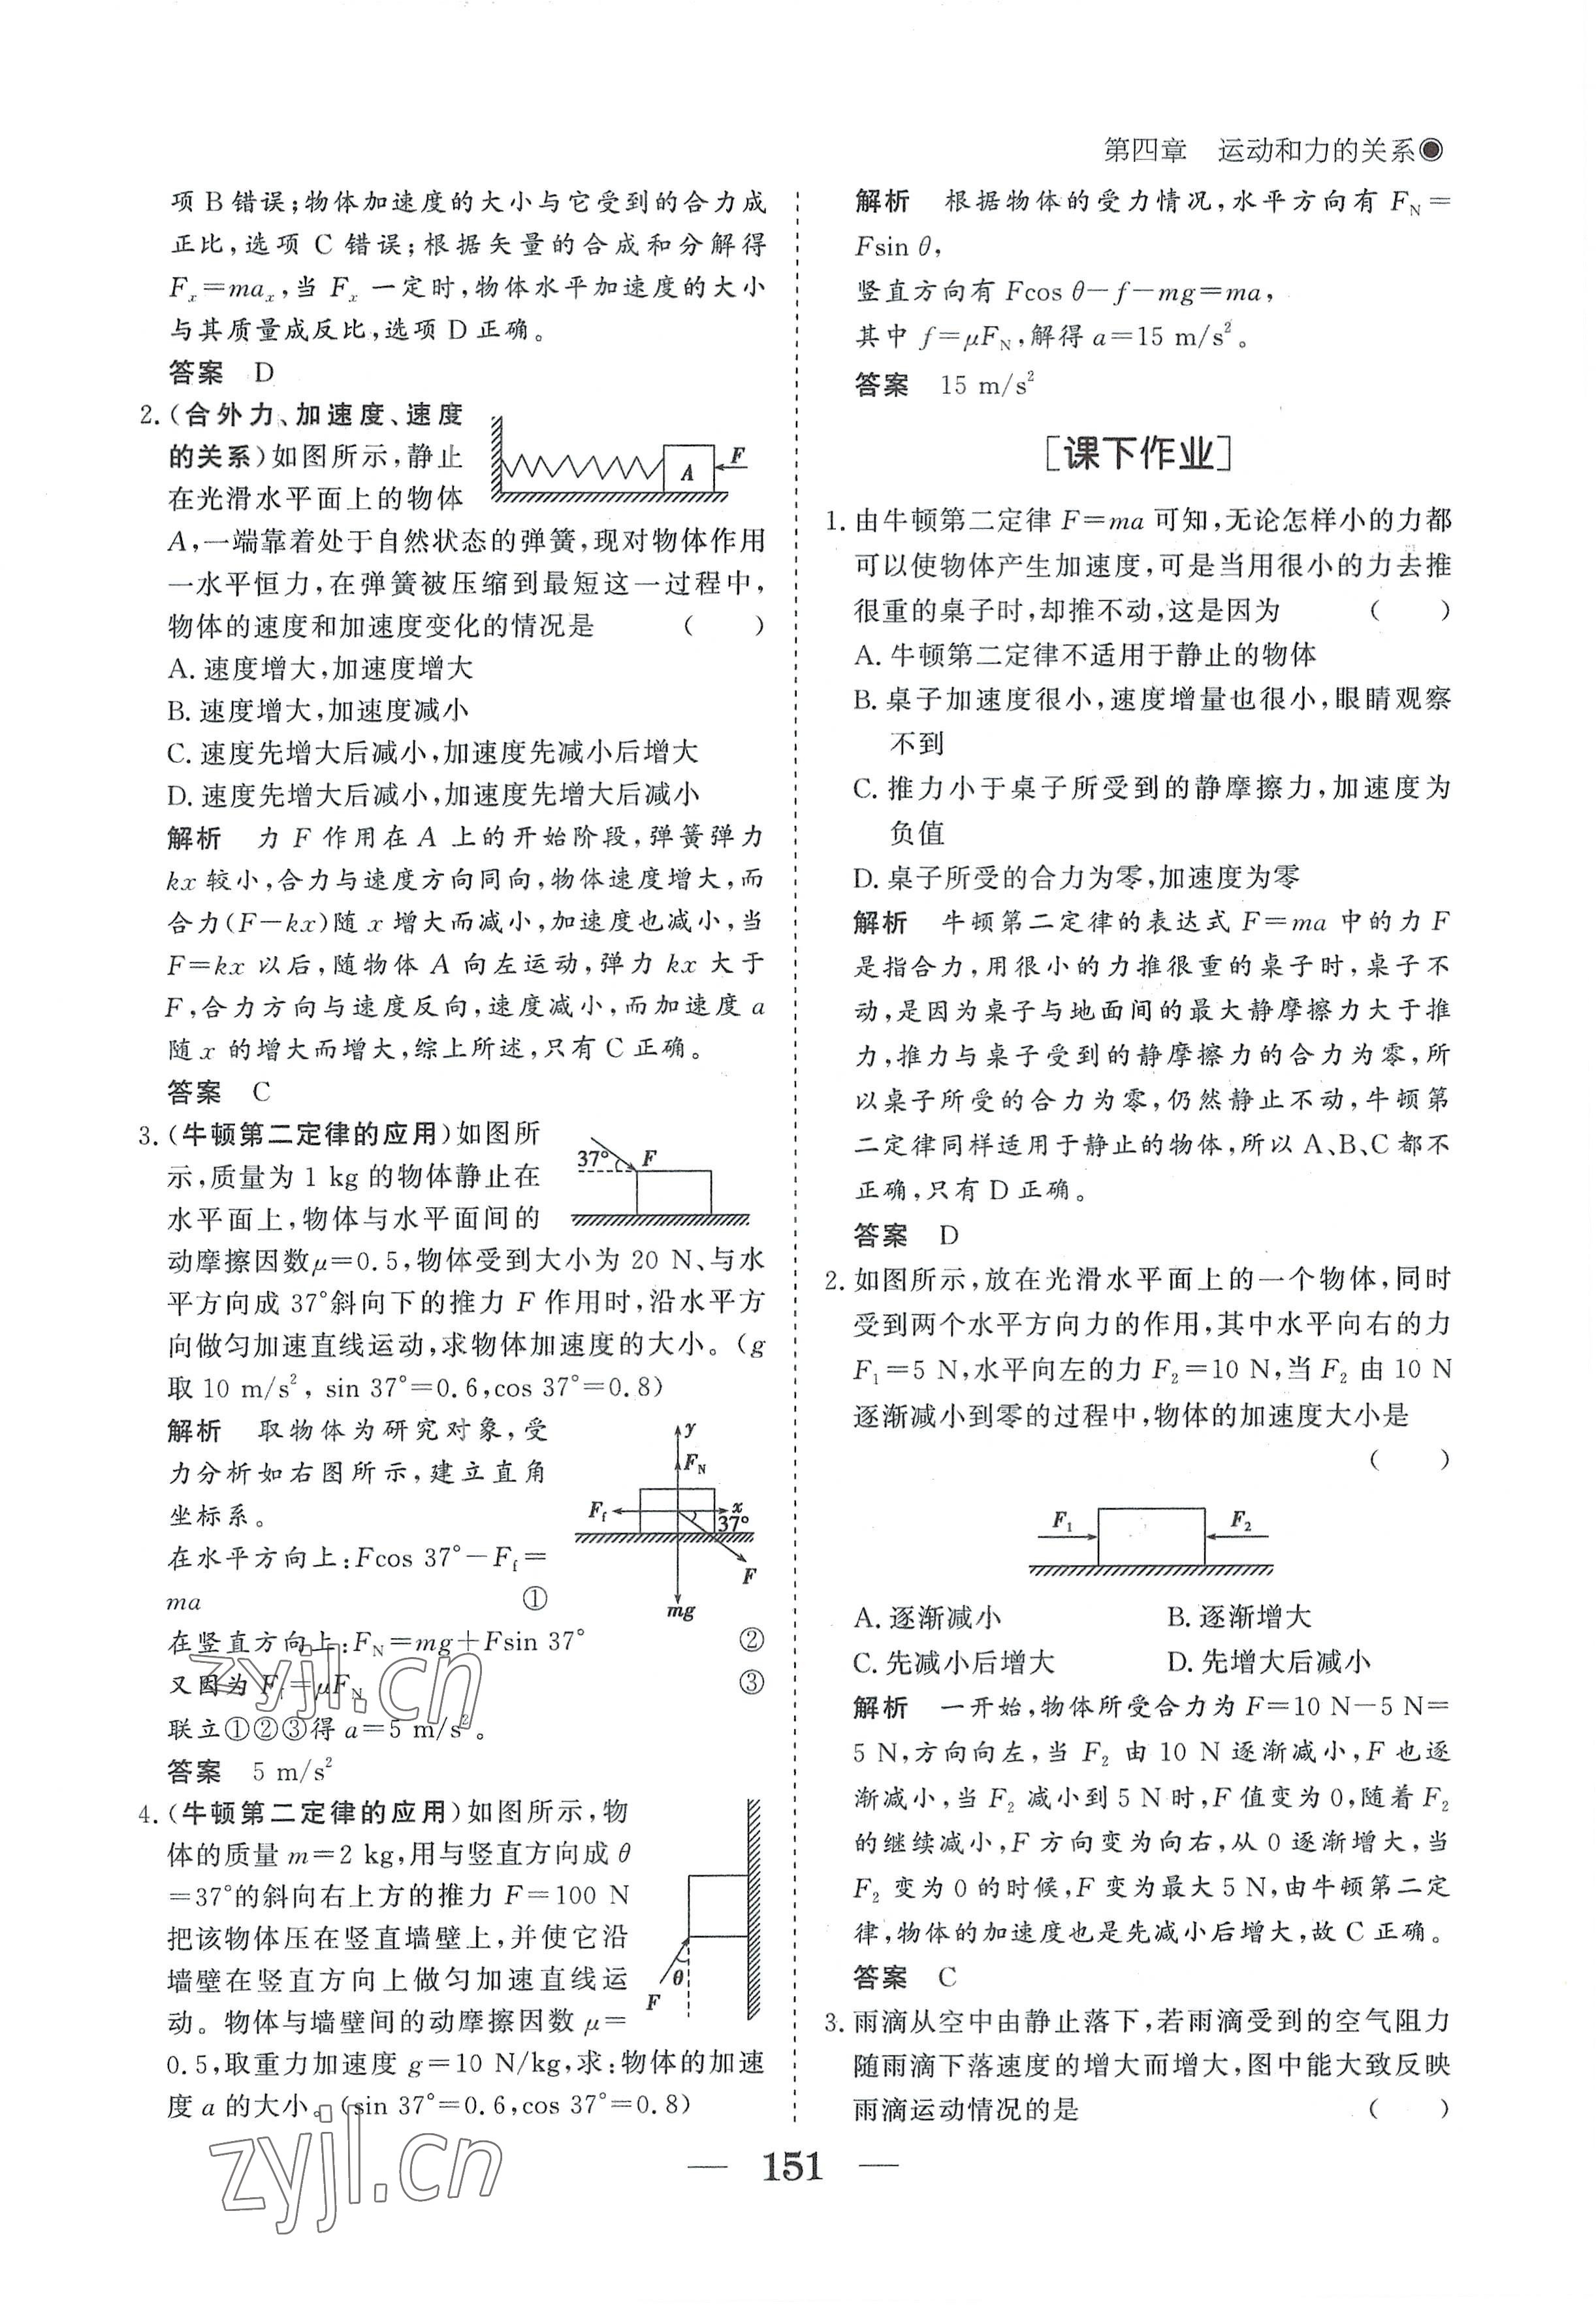 第四章　运动和力的关系
项 B 错误;物体加速度的大小与它受到的合力成
正比,选项 C 错误;根据矢量的合成和分解得
Fₓ=maₓ,当 Fₓ 一定时,物体水平加速度的大小
与其质量成反比,选项 D 正确。
答案　D
2.(合外力、加速度、速度
的关系)如图所示,静止
在光滑水平面上的物体
A,一端靠着处于自然状态的弹簧,现对物体作用
一水平恒力,在弹簧被压缩到最短这一过程中,
物体的速度和加速度变化的情况是　(　　)
A
F
A. 速度增大,加速度增大
B. 速度增大,加速度减小
C. 速度先增大后减小,加速度先减小后增大
D. 速度先增大后减小,加速度先增大后减小
解析　力 F 作用在 A 上的开始阶段,弹簧弹力
kx 较小,合力与速度方向同向,物体速度增大,而
合力(F−kx)随 x 增大而减小,加速度也减小,当
F=kx 以后,随物体 A 向左运动,弹力 kx 大于
F,合力方向与速度反向,速度减小,而加速度 a
随 x 的增大而增大,综上所述,只有 C 正确。
答案　C
3.(牛顿第二定律的应用)如图所
示,质量为 1 kg 的物体静止在
水平面上,物体与水平面间的
动摩擦因数μ=0.5,物体受到大小为 20 N、与水
平方向成 37°斜向下的推力 F 作用时,沿水平方
向做匀加速直线运动,求物体加速度的大小。(g
取 10 m/s², sin 37°=0.6,cos 37°=0.8)
37°
F
解析　取物体为研究对象,受
力分析如右图所示,建立直角
坐标系。
在水平方向上:Fcos 37°−F_f=
ma　①
在竖直方向上:F_N=mg+Fsin 37°　②
又因为 F_f=μF_N　③
联立①②③得 a=5 m/s²。
y
F_N
F_f
x
37°
F
mg
答案　5 m/s²
4.(牛顿第二定律的应用)如图所示,物
体的质量 m=2 kg,用与竖直方向成 θ
=37°的斜向右上方的推力 F=100 N
把该物体压在竖直墙壁上,并使它沿
墙壁在竖直方向上做匀加速直线运
动。物体与墙壁间的动摩擦因数 μ=
0.5,取重力加速度 g=10 N/kg,求:物体的加速
度 a 的大小。(sin 37°=0.6,cos 37°=0.8)
θ
F
解析　根据物体的受力情况,水平方向有 F_N=
Fsin θ,
竖直方向有 Fcos θ−f−mg=ma,
其中 f=μF_N,解得 a=15 m/s²。
答案　15 m/s²
[课下作业]
1. 由牛顿第二定律 F=ma 可知,无论怎样小的力都
可以使物体产生加速度,可是当用很小的力去推
很重的桌子时,却推不动,这是因为　(　　)
A. 牛顿第二定律不适用于静止的物体
B. 桌子加速度很小,速度增量也很小,眼睛观察
不到
C. 推力小于桌子所受到的静摩擦力,加速度为
负值
D. 桌子所受的合力为零,加速度为零
解析　牛顿第二定律的表达式 F=ma 中的力 F
是指合力,用很小的力推很重的桌子时,桌子不
动,是因为桌子与地面间的最大静摩擦力大于推
力,推力与桌子受到的静摩擦力的合力为零,所
以桌子所受的合力为零,仍然静止不动,牛顿第
二定律同样适用于静止的物体,所以 A、B、C 都不
正确,只有 D 正确。
答案　D
2. 如图所示,放在光滑水平面上的一个物体,同时
受到两个水平方向力的作用,其中水平向右的力
F₁=5 N,水平向左的力 F₂=10 N,当 F₂ 由 10 N
逐渐减小到零的过程中,物体的加速度大小是
(　　)
F₁
F₂
A. 逐渐减小　B. 逐渐增大
C. 先减小后增大　D. 先增大后减小
解析　一开始,物体所受合力为 F=10 N−5 N=
5 N,方向向左,当 F₂ 由 10 N 逐渐减小,F 也逐
渐减小,当 F₂ 减小到 5 N 时,F 值变为 0,随着 F₂
的继续减小,F 方向变为向右,从 0 逐渐增大,当
F₂ 变为 0 的时候,F 变为最大 5 N,由牛顿第二定
律,物体的加速度也是先减小后增大,故 C 正确。
答案　C
3. 雨滴从空中由静止落下,若雨滴受到的空气阻力
随雨滴下落速度的增大而增大,图中能大致反映
雨滴运动情况的是　(　　)
— 151 —
zyjl.cn
zyjl.cn